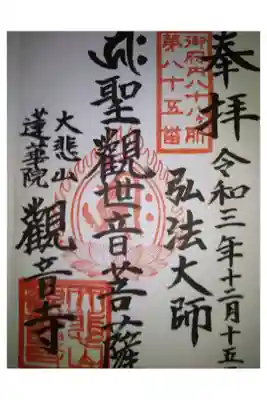 奉拝
令和三年十二月十五
御府内八十八ヶ所
第八十五番
弘法大師
聖觀世音菩薩
大悲山
蓮華院
觀音寺